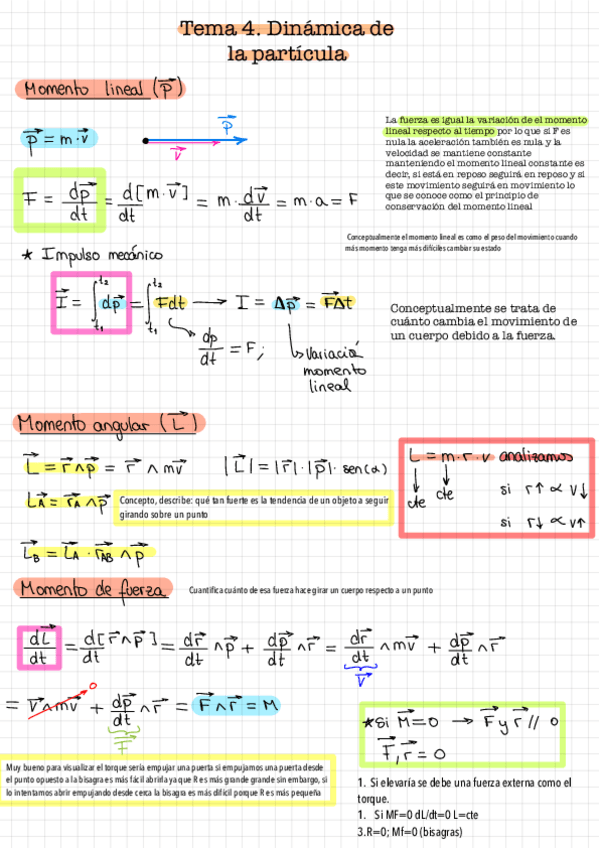 Tema 4. Dinámica de
la partícula
Momento lineal (p⃗)
p⃗ = m·v⃗
p⃗
v⃗
La fuerza es igual la variación de el momento
lineal respecto al tiempo por lo que si F es
nula la aceleración también es nula y la
velocidad se mantiene constante
manteniendo el momento lineal constante es
decir, si está en reposo seguirá en reposo y si
este movimiento seguirá en movimiento lo
que se conoce como el principio de
conservación del momento lineal
F = dp⃗/dt = d[m·v⃗]/dt = m·dv⃗/dt = m·a = F
Conceptualmente el momento lineal es como el peso del movimiento cuando
más momento tenga más difíciles cambiar su estado
* Impulso mecánico
I⃗ = ∫t1t2 dp⃗ = ∫t1t2 Fdt → I = Δp⃗ = F⃗Δt
dp/dt = F;
Variació
momento
lineal
Conceptualmente se trata de
cuánto cambia el movimiento de
un cuerpo debido a la fuerza.
Momento angular (L⃗)
L⃗ = r⃗∧p⃗ = r⃗ ∧ mv⃗ |L⃗| = |r⃗|·|p⃗|·sen(α)
L⃗A = r⃗A ∧ p⃗
Concepto, describe: qué tan fuerte es la tendencia de un objeto a seguir
girando sobre un punto
L⃗B = L⃗A · r⃗AB ∧ p⃗
L = m·r·v analizamos
cte cte
si r↑ ∝ v↓
si r↓ ∝ v↑
Momento de fuerza
Cuantifica cuánto de esa fuerza hace girar un cuerpo respecto a un punto
dL⃗/dt = d[r⃗∧p⃗]/dt = dr⃗/dt ∧ p⃗ + dp⃗/dt ∧ r⃗ = dr⃗/dt ∧ mv⃗ + dp⃗/dt ∧ r⃗
v⃗
= v⃗∧mv⃗ 0 + dp⃗/dt ∧ r⃗ = F⃗∧r⃗ = M
F⃗
*si M⃗=0 → F⃗ y r⃗ // o
F⃗, r⃗ = 0
Muy bueno para visualizar el torque sería empujar una puerta si empujamos una puerta desde
el punto opuesto a la bisagra es más fácil abrirla ya que R es más grande grande sin embargo, si
lo intentamos abrir empujando desde cerca la bisagra es más difícil porque R es más pequeña
1. Si elevaría se debe una fuerza externa como el
torque.
1. Si MF=0 dL/dt=0 L=cte
3.R=0; Mf=0 (bisagras)